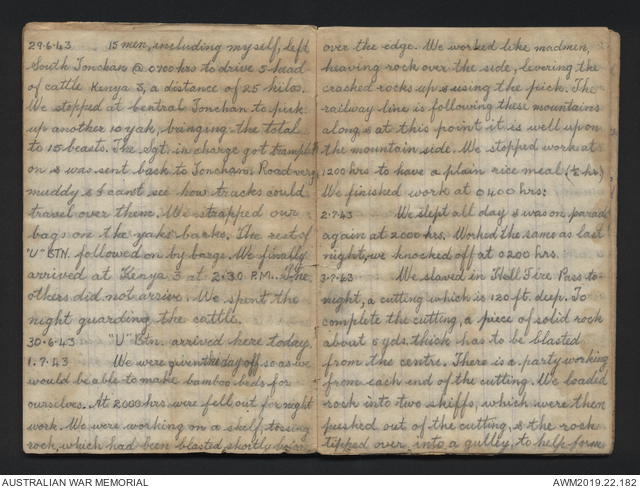 29.6.43 15 men, including myself, left
South Tonchan @ 0700 hrs to drive 5 head
of cattle Kenya 3, a distance of 25 kilos.
We stopped at Central Tonchan to pick
up another 10 yak, bringing the total
to 15 beasts. The Sgt. in charge got trampled
on & was sent back to Tonchan. Road very
muddy & I cant see how trucks could
travel over them. We strapped our
bags on the yaks' backs. The rest of
"U" BTN. followed on by barge. We finally
arrived at Kenya 3 at 2.30 P.M. The
others did not arrive. We spent the
night guarding the cattle.
30.6.43 "U" Btn. arrived here today.
1.7.43 We were given the day off so as we
would be able to make bamboo beds for
ourselves. At 2000 hrs. were fell out for night
work. We were working on a skelf, tossing
rock, which had been blasted shortly
over the edge. We worked like madmen,
heaving rock over the side, levering the
cracked rocks up & using the pick. The
railway line is following these mountains
along & at this point it is well up on
the mountain side. We stopped work at
1200 hrs to have a plain rice meal (½ hr)
We finished work at 0400 hrs.
2.7.43 We slept all day & was on parade
again at 2000 hrs. Worked the same as last
night, we knocked off at 0200 hrs.
3.7.43 We slaved in Hell Fire Pass to-
night, a cutting which is 120 ft. deep. To
complete the cutting, a piece of solid rock
about 6 yds. thick has to be blasted
from the centre. There is a party working
from each end of the cutting. We loaded
rock into two skiffs, which were then
pushed out of the cutting, & the rock
tipped over into a gulley, to help form
AUSTRALIAN WAR MEMORIAL
AWM2019.22.182